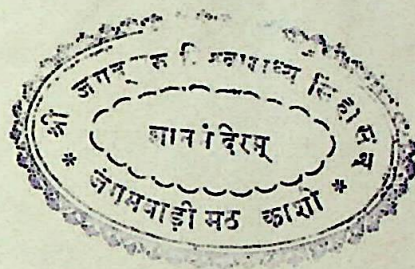 श्री जगद्गुरु विश्वाराध्य
ज्ञान मंदिरम्
* जंगमवाड़ी मठ काशी *